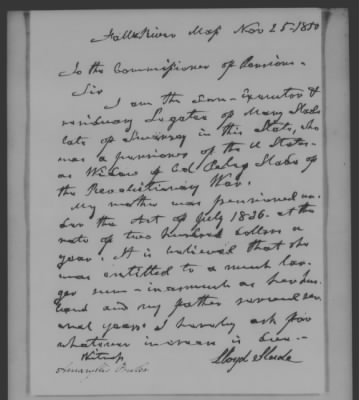 Fall River Mass Nov 25 - 1850
To the Commissioner of Pensions -
Sir
I am the Son - Executor &
residuary Legatee of Mary Slade
late of Swansey in this State, who
was a pensioner of the U States -
as Widow of Slade of
the Revolutionary War.
My mother was pensioned un-
der the Act of July 1836 - at the
rate of two hundred dollars a
year. It is believed that she
was entitled to a much lar-
ger sum - inasmuch as her hus-
band and my father served sev-
eral years. I hereby ask for
whatever increase is due -
Witness Lloyd Slade